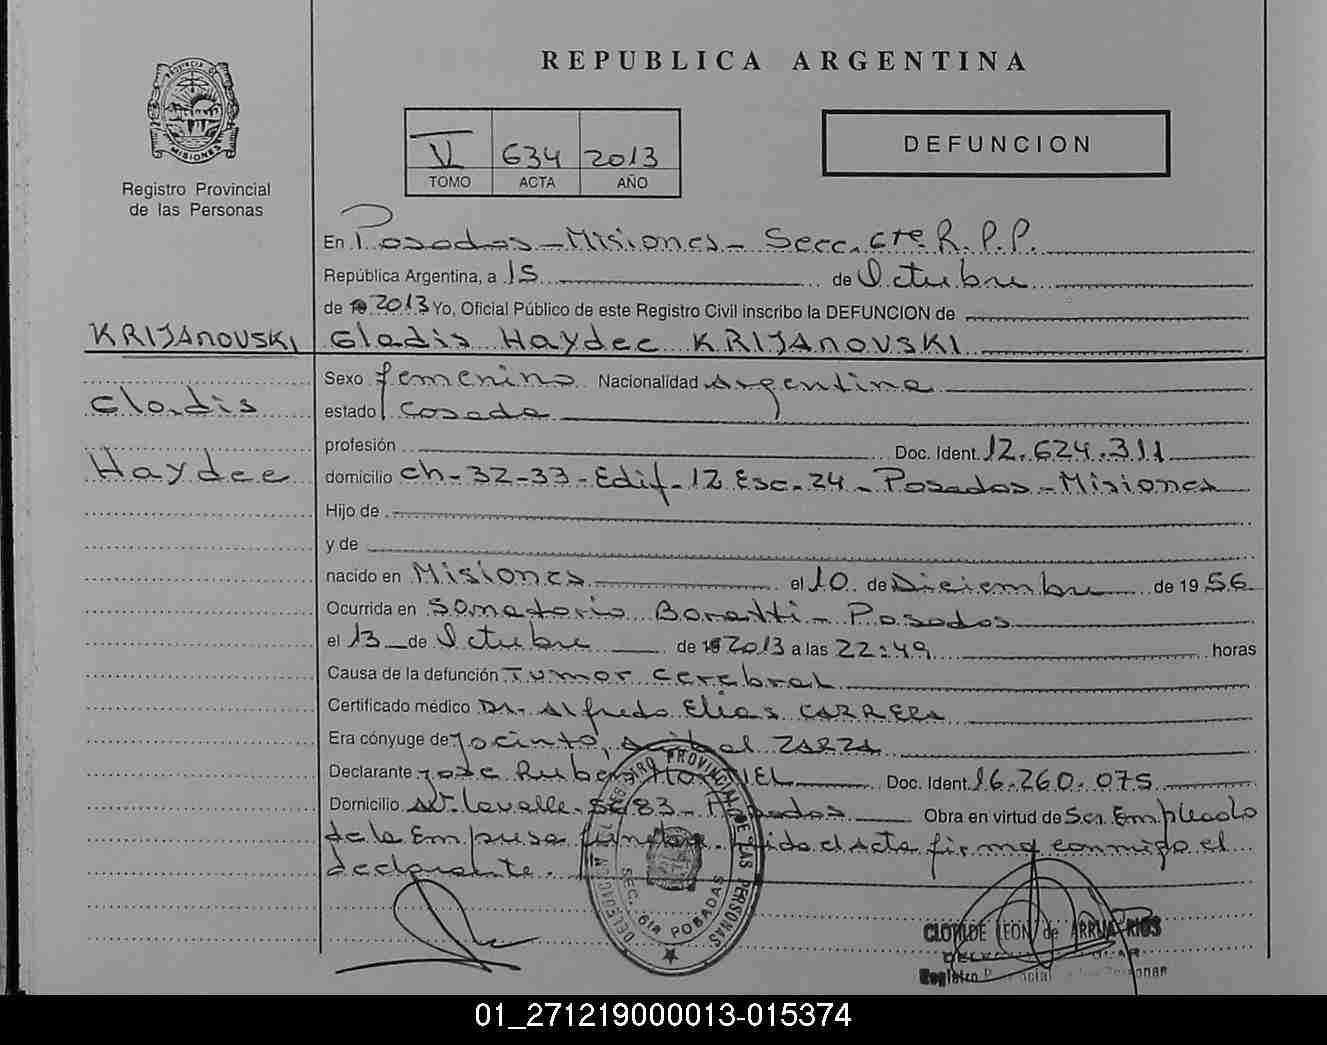 REPUBLICA ARGENTINA
PROVINCIA D
MISIONES
Registro Provincial
de las Personas
VI 634 2013
TOMO ACTA AÑO
DEFUNCION
En Posadas - Misiones - Secc. 6ta R. P. P.
República Argentina, a 15 de Octubre
de 2013 Yo, Oficial Público de este Registro Civil inscribo la DEFUNCION de
KRIJANOVSKI Gladis Haydee KRIJANOVSKI
Sexo femenino Nacionalidad Argentina
Gladis
estado Casada
profesión Doc. Ident. 12.624.311
Haydee
domicilio ch-32-33-Edif-12 Esc.-24-Posadas-Misiones
Hijo de
y de
nacido en Misiones el 10 de Diciembre de 1956
Ocurrida en Sanatorio Boratti - Posadas
el 13 de Octubre de 2013 a las 22:49 horas
Causa de la defunción Tumor cerebral
Certificado médico Dr. Alfredo Elias CARRERA
Era cónyuge de Jacinto Anibal ZARZA
Declarante Jose Ruben Doc. Ident. 16.260.075
Domicilio Av. Lavalle 5683 - Posadas Obra en virtud de Ser Empleado
de la Empresa funebre. Leida el Acta firma conmigo el
declarante.
REGISTRO PROVINCIAL DE LAS PERSONAS
DELEGACION
SEC. 6ta POSADAS
CLOTILDE LEON de ARRUA RIOS
Registro Provincial de las Personas
01_271219000013-015374